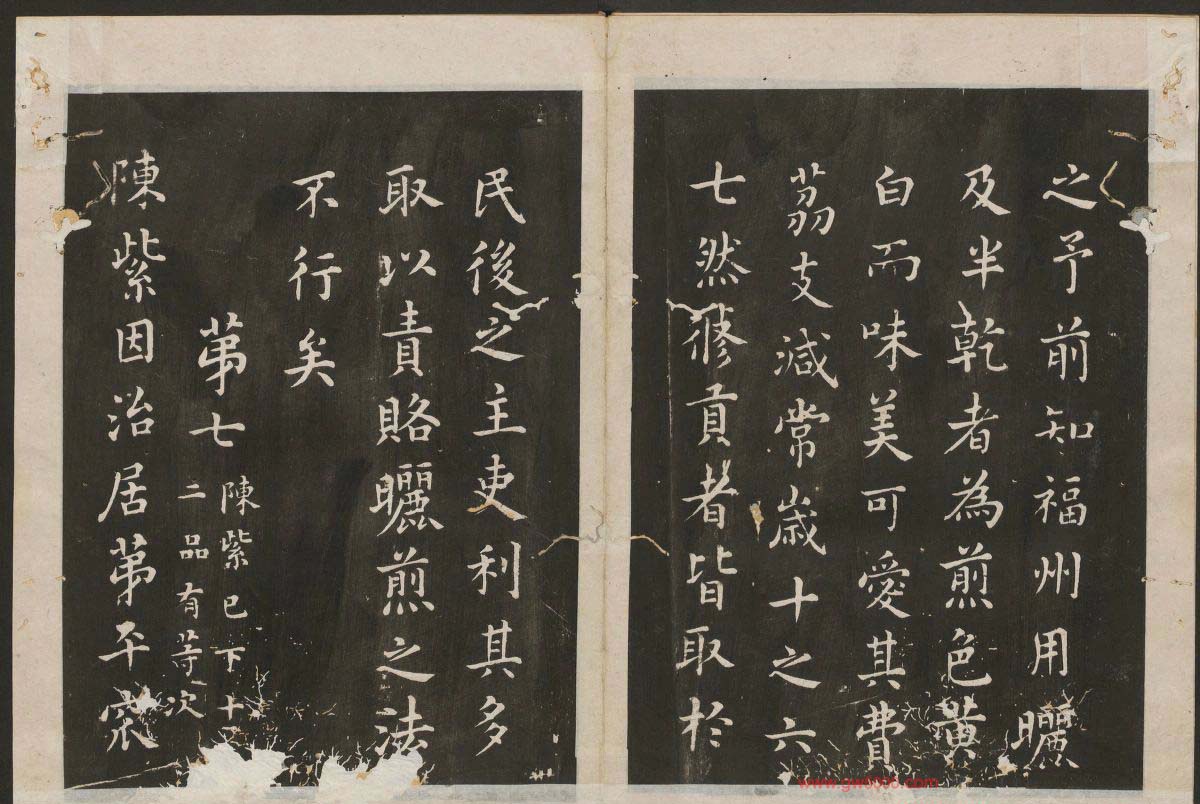 之予前知福州用曬
及半乾者為煎色黃
白而味美可愛其費
荔支減常歲十之六
七然修貢者皆取於
民後之主吏利其多
取以責賂曬煎之法
不行矣
第七
陳紫已下十
二品有等次
陳紫因治居第平窊